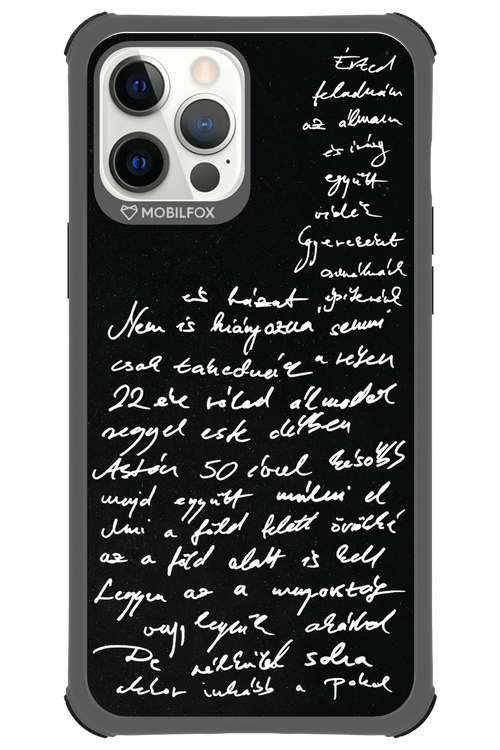 MOBILFOX
Érted
feladnám
az álmaim
és így
együtt
veled
Gyereseket
csinálnánk
és házat építenénk
Nem is hiányozna semmi
csak takednék a
22 éve rólad álmodok
reggel este délben
Aztán 50 évvel később
majd együtt múlni el
Ami a föld felett örökké
az a föld alatt is kell
Legyen az a mennyország
vagy legyünk akárhol
De nélküled soha
akkor inkább a Pokol